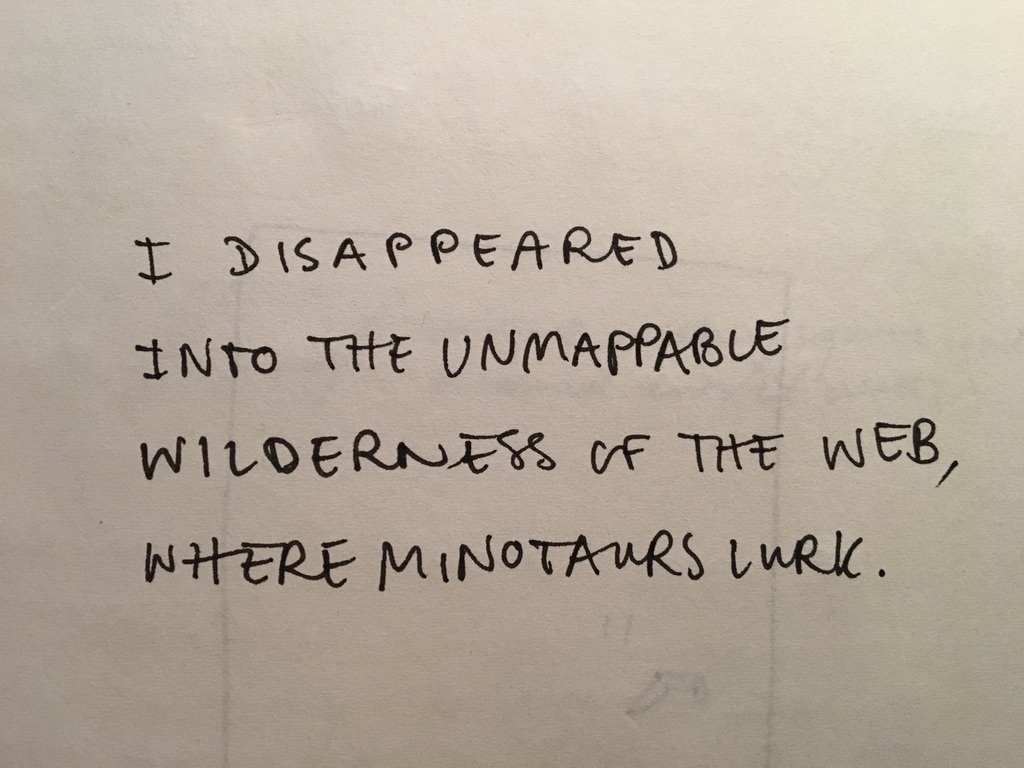 I DISAPPEARED
INTO THE UNMAPPABLE
WILDERNESS OF THE WEB,
WHERE MINOTAURS LURK.